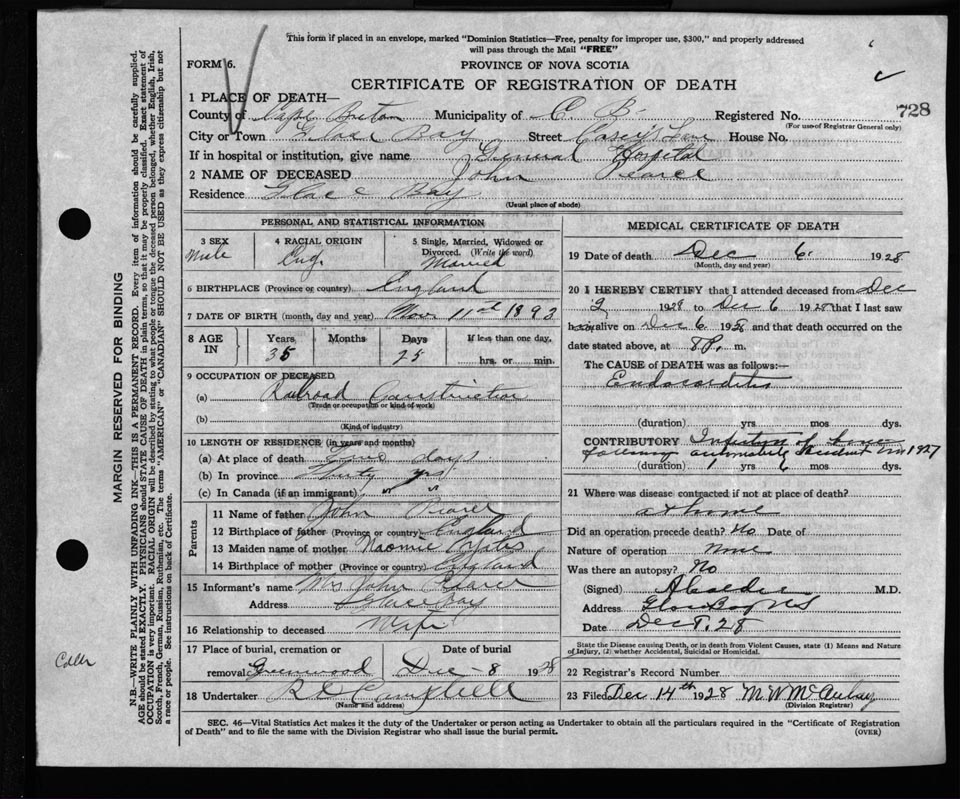 This form if placed in an envelope, marked "Dominion Statistics—Free, penalty for improper use, $300," and properly addressed
will pass through the Mail "FREE"
FORM 6.
PROVINCE OF NOVA SCOTIA
CERTIFICATE OF REGISTRATION OF DEATH
728
1 PLACE OF DEATH—
County of Cape Breton Municipality of C B Registered No.
(For use of Registrar General only)
City or Town Glace Bay Street Casey's Lane House No.
If in hospital or institution, give name General Hospital
2 NAME OF DECEASED John Pearce
Residence Glace Bay
(Usual place of abode)
PERSONAL AND STATISTICAL INFORMATION
3 SEX
Male
4 RACIAL ORIGIN
Eng.
5 Single, Married, Widowed or
Divorced. (Write the word)
Married
6 BIRTHPLACE (Province or country) England
7 DATE OF BIRTH (month, day and year) Nov 11th 1893
8 AGE IN
Years
35
Months
Days
25
If less than one day,
hrs. or min.
9 OCCUPATION OF DECEASED
(a) Railroad Construction
(Trade or occupation or kind of work)
(b)
(Kind of industry)
10 LENGTH OF RESIDENCE (in years and months)
(a) At place of death days
(b) In province yrs
(c) In Canada (if an immigrant) " "
Parents
11 Name of father John Pearce
12 Birthplace of father (Province or country) England
13 Maiden name of mother Naomie
14 Birthplace of mother (Province or country) England
15 Informant's name Mrs John Pearce
Address Glace Bay
16 Relationship to deceased Wife
17 Place of burial, cremation or
removal Greenwood
Date of burial
Dec 8 1928
18 Undertaker Campbell
(Name and address)
MEDICAL CERTIFICATE OF DEATH
19 Date of death Dec 6 1928
(Month, day and year)
20 I HEREBY CERTIFY that I attended deceased from Dec
2 1928 to Dec 6 1928 that I last saw
him alive on Dec 6 1928 and that death occurred on the
date stated above, at 8 P. m.
The CAUSE of DEATH was as follows:—
Endocarditis
(duration) yrs mos dys.
CONTRIBUTORY Infection of
following automobile accident in 1927
(duration) 1 yrs 6 mos dys.
21 Where was disease contracted if not at place of death?
at home
Did an operation precede death? No Date of
Nature of operation None
Was there an autopsy? No
(Signed) M.D.
Address Glace Bay NS
Date Dec 28
State the Disease causing Death, or in death from Violent Causes, state (1) Means and Nature
of Injury, (2) whether Accidental, Suicidal or Homicidal.
22 Registrar's Record Number
23 Filed Dec 14th 1928 M.W. McAulay
(Division Registrar)
SEC. 46—Vital Statistics Act makes it the duty of the Undertaker or person acting as Undertaker to obtain all the particulars required in the "Certificate of Registration
of Death" and to file the same with the Division Registrar who shall issue the burial permit.
(OVER)
MARGIN RESERVED FOR BINDING
N.B.—WRITE PLAINLY WITH UNFADING INK—THIS IS A PERMANENT RECORD. Every item of information should be carefully supplied.
AGE should be stated EXACTLY. PHYSICIANS should STATE CAUSE OF DEATH in plain terms, so that it may be properly classified. Exact statement of
OCCUPATION is very important. RACIAL ORIGIN will be described by stating to what people or tongue the deceased person belonged, whether English, Irish,
Scotch, French, German, Russian, Ruthenian, etc. The terms "AMERICAN" or "CANADIAN" SHOULD NOT BE USED as they express citizenship but not
a race or people. See instructions on back of Certificate.